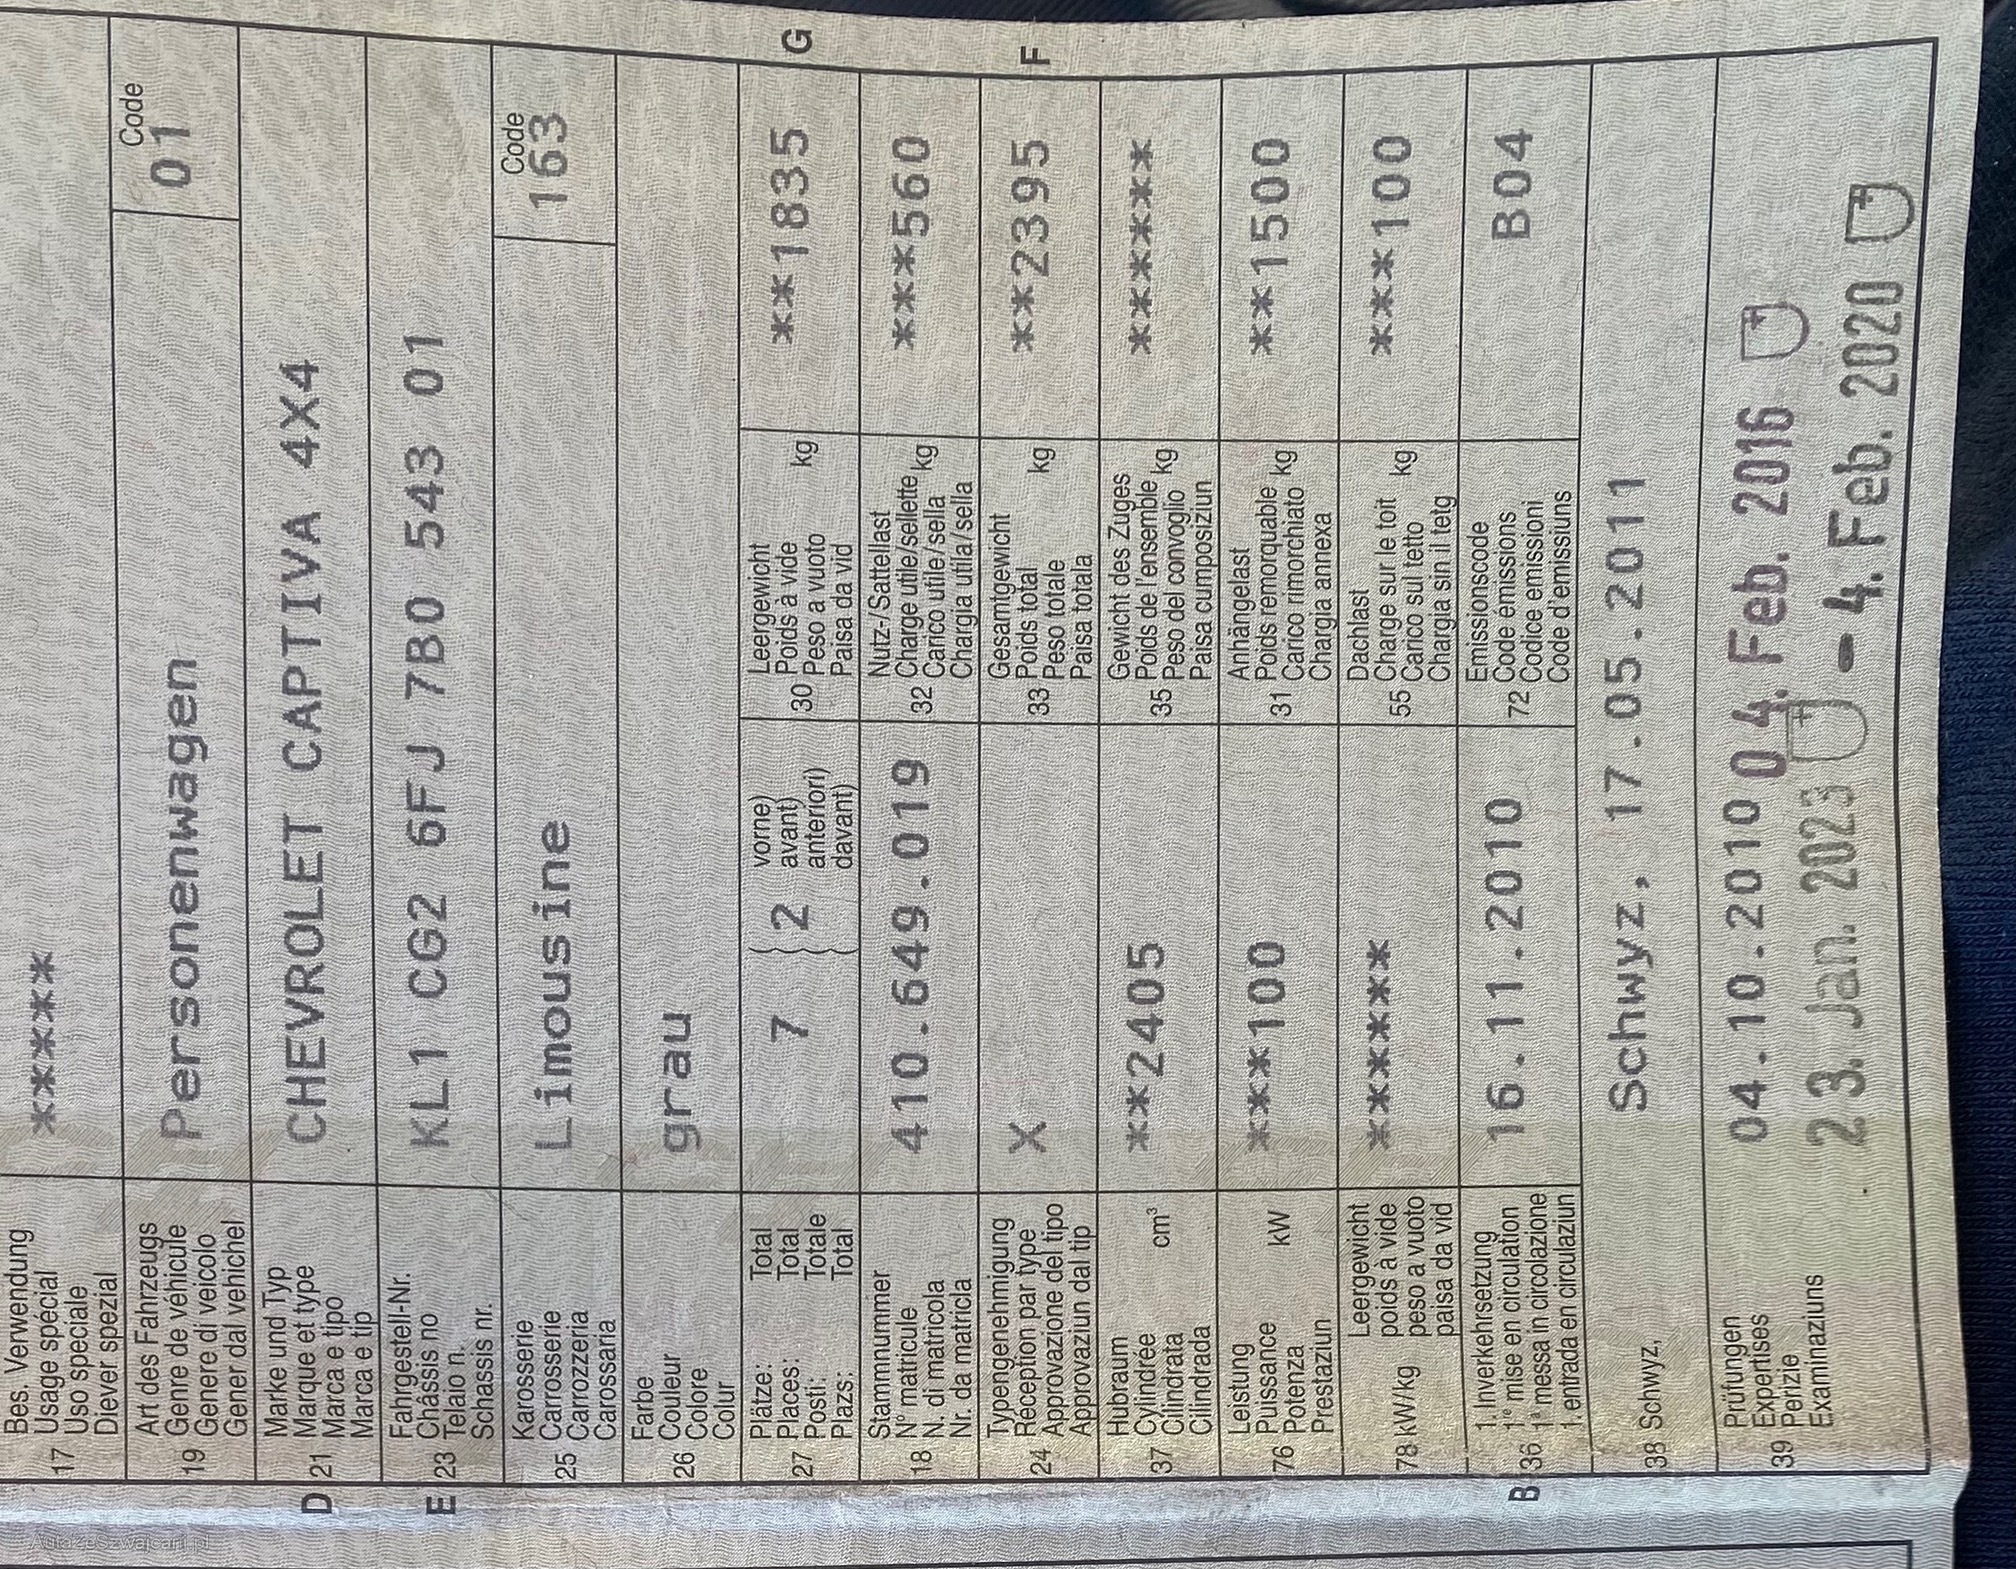 Bes. Verwendung
17 Usage spécial
Uso speciale
Diever spezial
*****
Art des Fahrzeugs
Genre de véhicule
19 Genere di veicolo
Gener dal vehichel
Personenwagen
Code
01
D
Marke und Typ
21 Marque et type
Marca e tipo
Marca e tip
CHEVROLET CAPTIVA 4X4
E
Fahrgestell-Nr.
23 Châssis no
Telaio n.
Schassis nr.
KL1 CG2 6FJ 7B0 543 01
Karosserie
Carrosserie
25 Carrozzeria
Carossaria
Limousine
Code
163
Farbe
Couleur
26 Colore
Colur
grau
Plätze: Total
Places: Total
27 Posti: Totale
Plazs: Total
7
2
vorne)
avant)
anteriori)
davant)
Leergewicht
Poids à vide
30 Peso a vuoto kg
Paisa da vid
**1835
G
Stammnummer
N° matricule
18 N. di matricola
Nr. da matricla
410.649.019
Nutz-/Sattellast
Charge utile/sellette
32 Carico utile/sella kg
Chargia utila/sella
***560
Typengenehmigung
Réception par type
24 Approvazione del tipo
Approvaziun dal tip
X
Gesamtgewicht
Poids total
33 Peso totale kg
Paisa totala
**2395
F
Hubraum
Cylindrée cm³
37 Cilindrata
Cilindrada
**2405
Gewicht des Zuges
Poids de l'ensemble
35 Peso del convoglio kg
Paisa cumposiziun
******
Leistung
Puissance kW
76 Potenza
Prestaziun
***100
Anhängelast
Poids remorquable
31 Carico rimorchiato kg
Chargia annexa
**1500
Leergewicht
poids à vide
78 kW/kg peso a vuoto
paisa da vid
******
Dachlast
Charge sur le toit
55 Carico sul tetto kg
Chargia sin il tetg
***100
B
1. Inverkehrsetzung
1re mise en circulation
36 1a messa in circolazione
1. entrada en circulaziun
16.11.2010
Emissionscode
72 Code émissions
Codice emissioni
Code d'emissiuns
B04
38 Schwyz,
Schwyz, 17.05.2011
Prüfungen
Expertises
39 Perizie
Examinaziuns
04.10.2010 04. Feb. 2016
23. Jan. 2023 - 4. Feb. 2020
AutazeSzwajcarii.pl